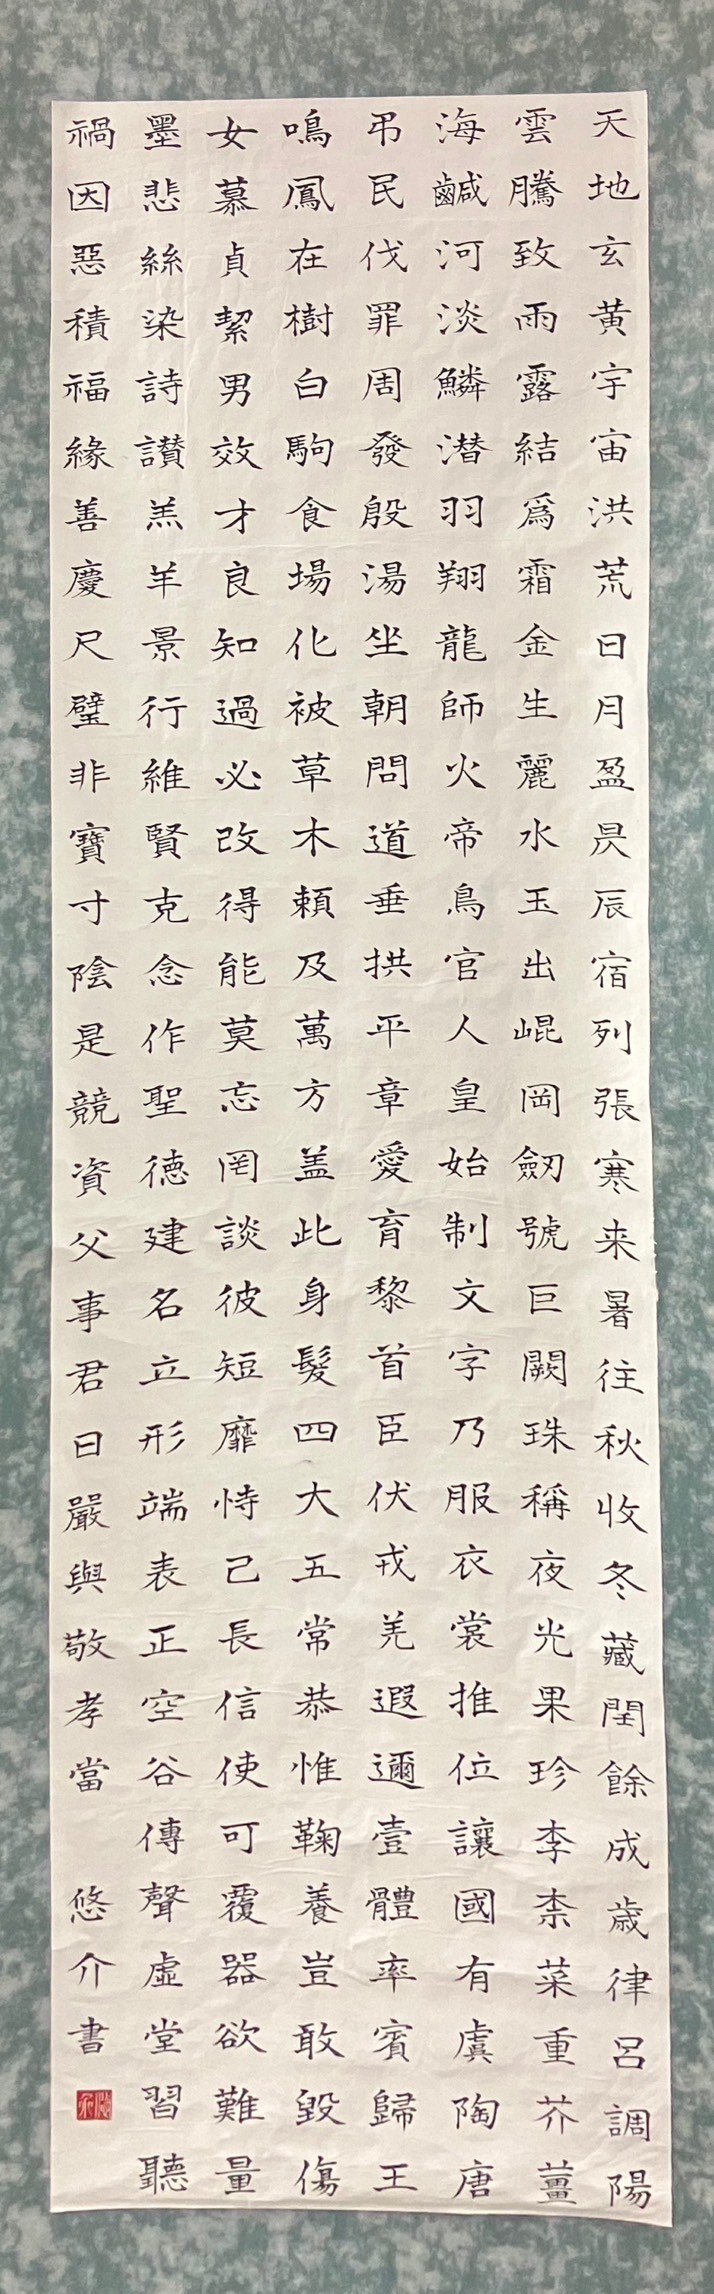 天地玄黄宇宙洪荒日月盈昃辰宿列張寒来暑往秋收冬藏閏餘成歳律呂調陽
雲騰致雨露結爲霜金生麗水玉出崐岡劒號巨闕珠稱夜光果珍李柰菜重芥薑
海鹹河淡鱗潜羽翔龍師火帝鳥官人皇始制文字乃服衣裳推位讓國有虞陶唐
弔民伐罪周發殷湯坐朝問道垂拱平章愛育黎首臣伏戎羌遐邇壹體率賓歸王
鳴鳳在樹白駒食場化被草木頼及萬方盖此身髮四大五常恭惟鞠養豈敢毀傷
女慕貞絜男效才良知過必改得能莫忘罔談彼短靡恃己長信使可覆器欲難量
墨悲絲染詩讃羔羊景行維賢克念作聖徳建名立形端表正空谷傳聲虚堂習聽
禍因惡積福緣善慶尺璧非寶寸陰是競資父事君曰嚴與敬孝當 悠介書